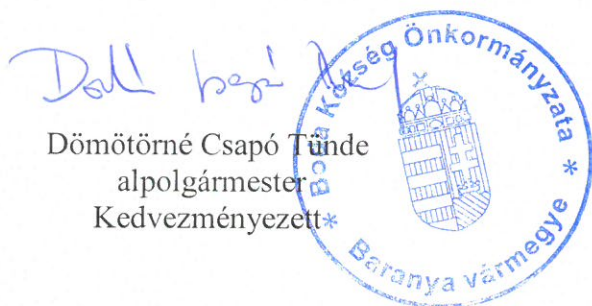 Dömötörné Csapó Tünde
alpolgármester
Kedvezményezett
* Boda Község Önkormányzata *
Baranya vármegye